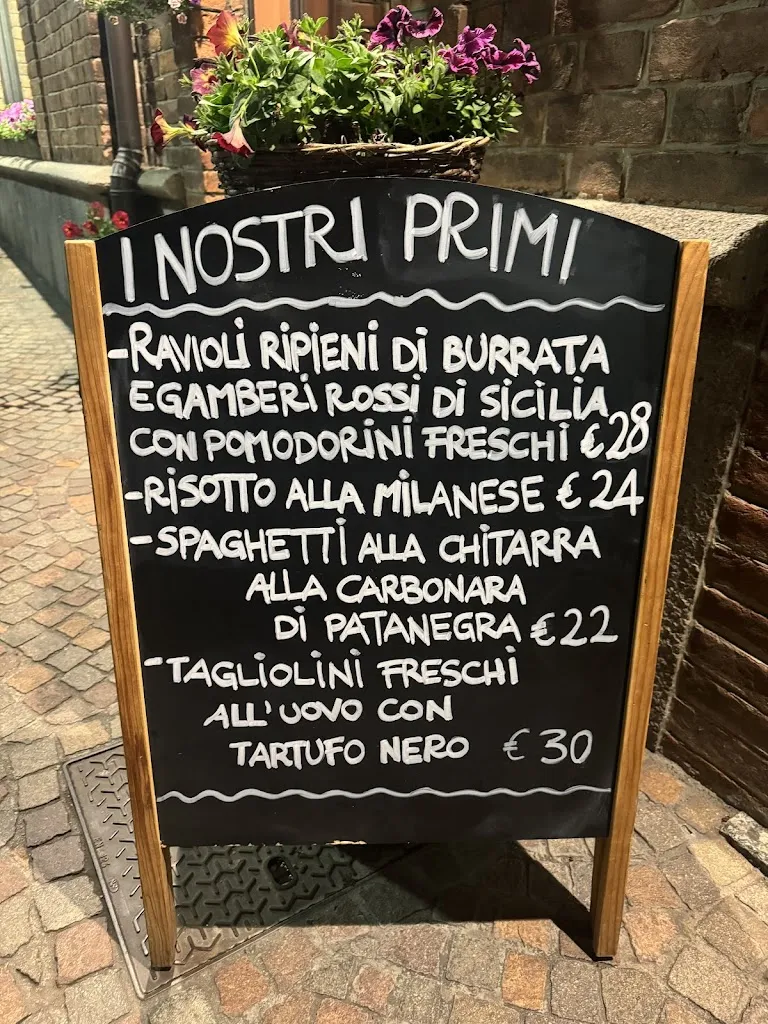 I NOSTRI PRIMI
- RAVIOLI RIPIENI DI BURRATA
E GAMBERI ROSSI DI SICILIA
CON POMODORINI FRESCHI €28
- RISOTTO ALLA MILANESE €24
- SPAGHETTI ALLA CHITARRA
ALLA CARBONARA
DI PATANEGRA €22
- TAGLIOLINI FRESCHI
ALL'UOVO CON
TARTUFO NERO €30